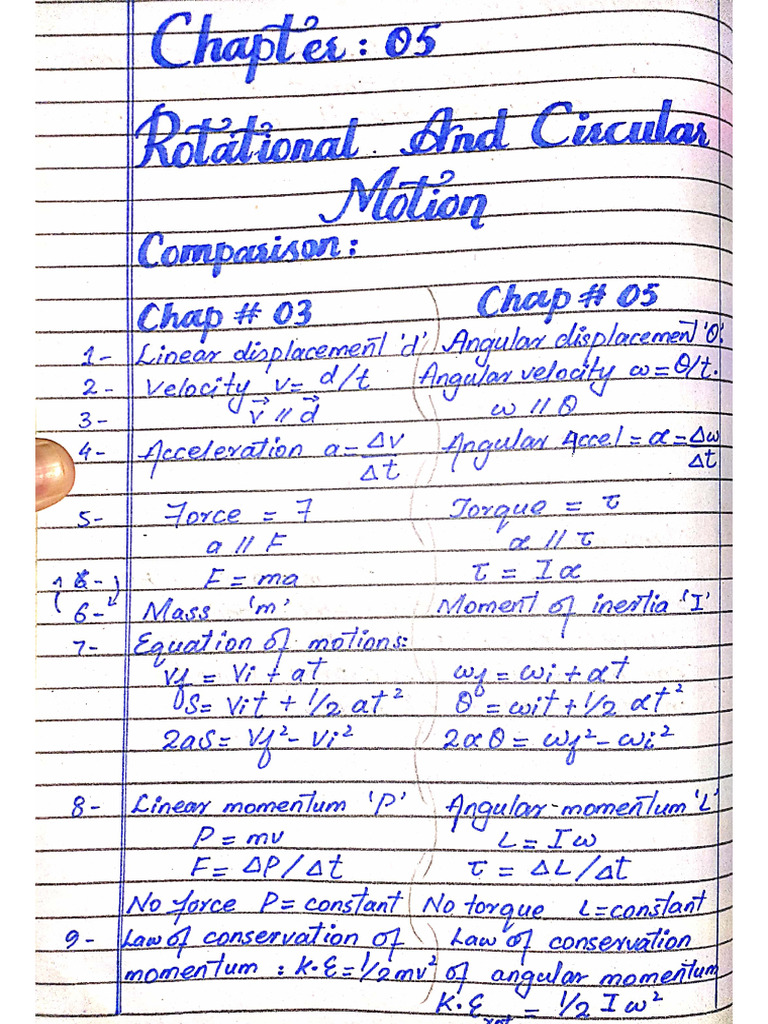 Chapter: 05
Rotational And Circular
Motion
Comparison:
Chap # 03 Chap # 05
1- Linear displacement 'd' Angular displacement 'θ'.
2- Velocity v= d/t Angular velocity ω=θ/t.
3- v⃗ // d⃗ ω // θ
4- Acceleration a= Δv/Δt Angular Accel = α = Δω/Δt
5- Force = F Torque = τ
a // F α // τ
F = ma τ = Iα
6- Mass 'm' Moment of inertia 'I'
7- Equation of motions:
Vf = Vi + at ωf = ωi + αt
S= Vit + 1/2 at² θ = ωit + 1/2 αt²
2aS= Vf² - Vi² 2αθ = ωf² - ωi²
8- Linear momentum 'P' Angular momentum 'L'
P = mv L = Iω
F= ΔP/Δt τ = ΔL/Δt
No force P= constant No torque L=constant
9- Law of conservation of Law of conservation
momentum: K.E=1/2mv² of angular momentum
K.E rot = 1/2 I ω²